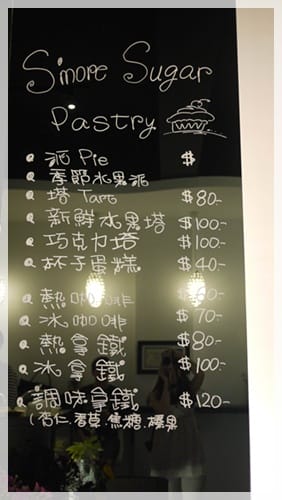 S'more Sugar
Pastry
派 Pie $
季節水果派
塔 Tart $80-
新鮮水果塔 $100-
巧克力塔 $100-
杯子蛋糕 $40-
熱咖啡 $60-
冰咖啡 $70-
熱拿鐵 $80-
冰拿鐵 $100-
調味拿鐵 $120-
(杏仁.香草.焦糖.榛果